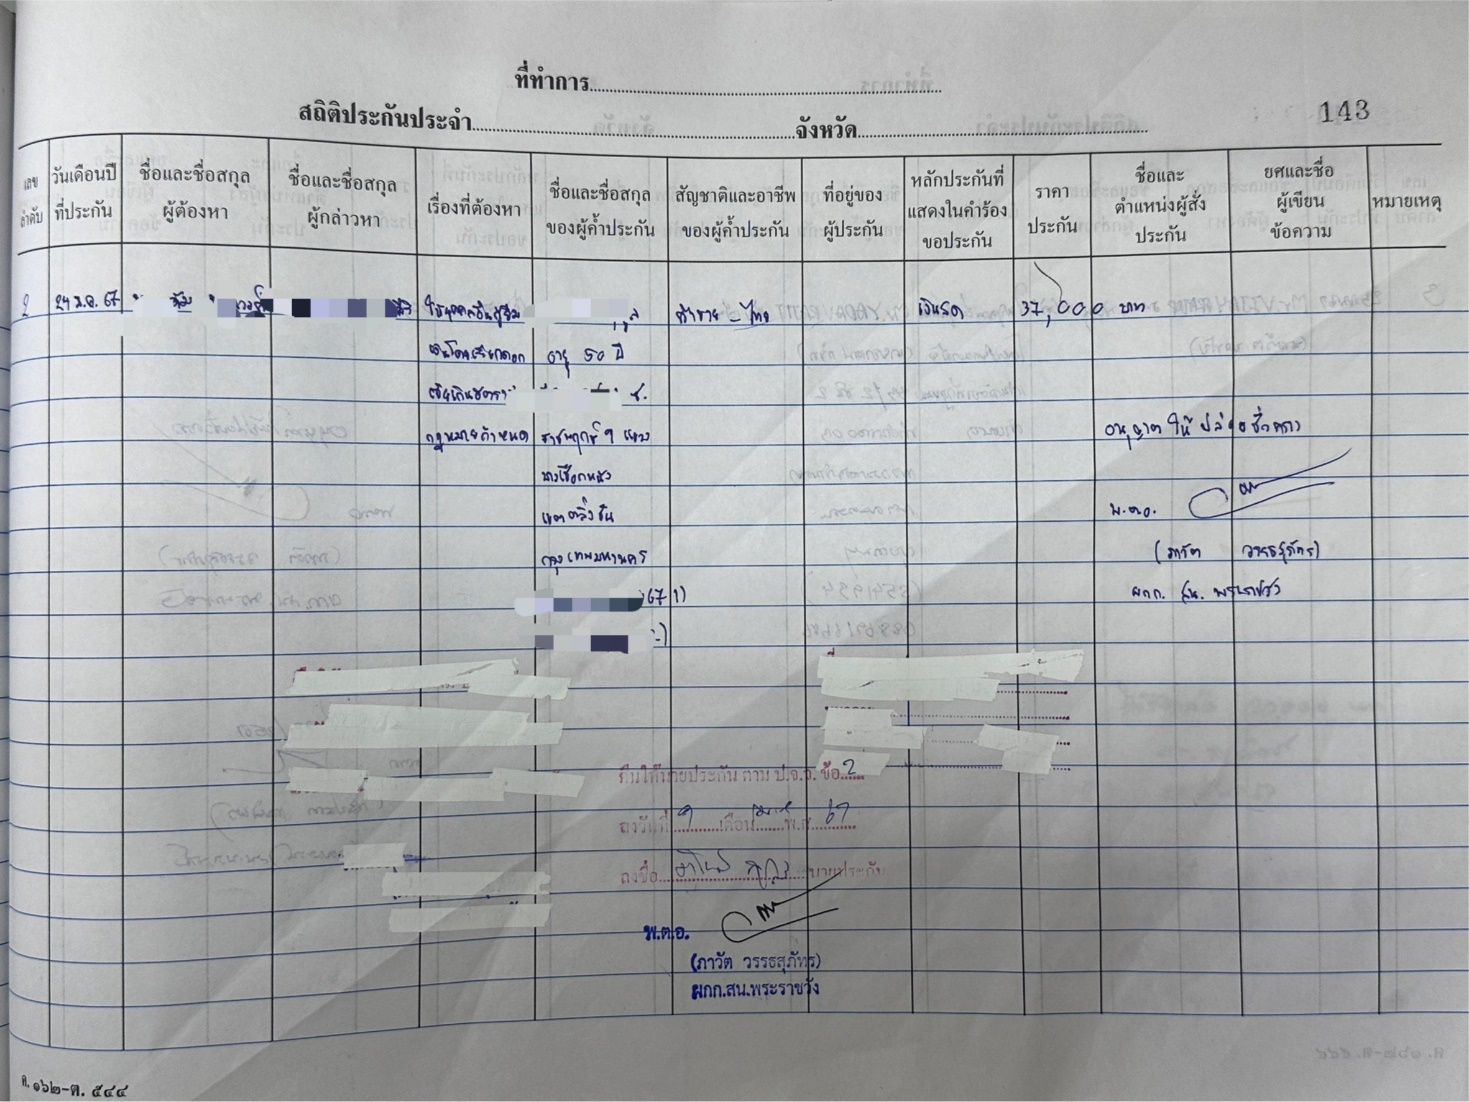 ที่ทำการ
สถิติประกันประจำ จังหวัด
143
เลขลำดับ
วันเดือนปีที่ประกัน
ชื่อและชื่อสกุลผู้ต้องหา
ชื่อและชื่อสกุลผู้กล่าวหา
เรื่องที่ต้องหา
ชื่อและชื่อสกุลของผู้ค้ำประกัน
สัญชาติและอาชีพของผู้ค้ำประกัน
ที่อยู่ของผู้ประกัน
หลักประกันที่แสดงในคำร้องขอประกัน
ราคาประกัน
ชื่อและตำแหน่งผู้สั่งประกัน
ยศและชื่อผู้เขียนข้อความ
หมายเหตุ
2
67
ให้บุคคลอื่นกู้ยืม
เงินโดยเรียกดอก
เบี้ยเกินอัตรา
กฎหมายกำหนด
อายุ 50 ปี
ซ.
ราชพฤกษ์ 9 แขวง
บางเชือกหนัง
เขตตลิ่งชัน
กรุงเทพมหานคร
671)
ค้าขาย - ไทย
เงินสด
37,000 บาท
อนุญาตให้ปล่อยชั่วคราว
พ.ต.อ.
(ภาวัต วรรธสุภัทร)
ผกก. สน. พระราชวัง
คืนให้นายประกัน ตาม ป.จ.ว. ข้อ 2
ลงวันที่ เดือน พ.ศ. 67
ลงชื่อ นายประกัน
พ.ต.อ.
(ภาวัต วรรธสุภัทร)
ผกก.สน.พระราชวัง
ค. ๑๖๒-ต. ๕๔๔